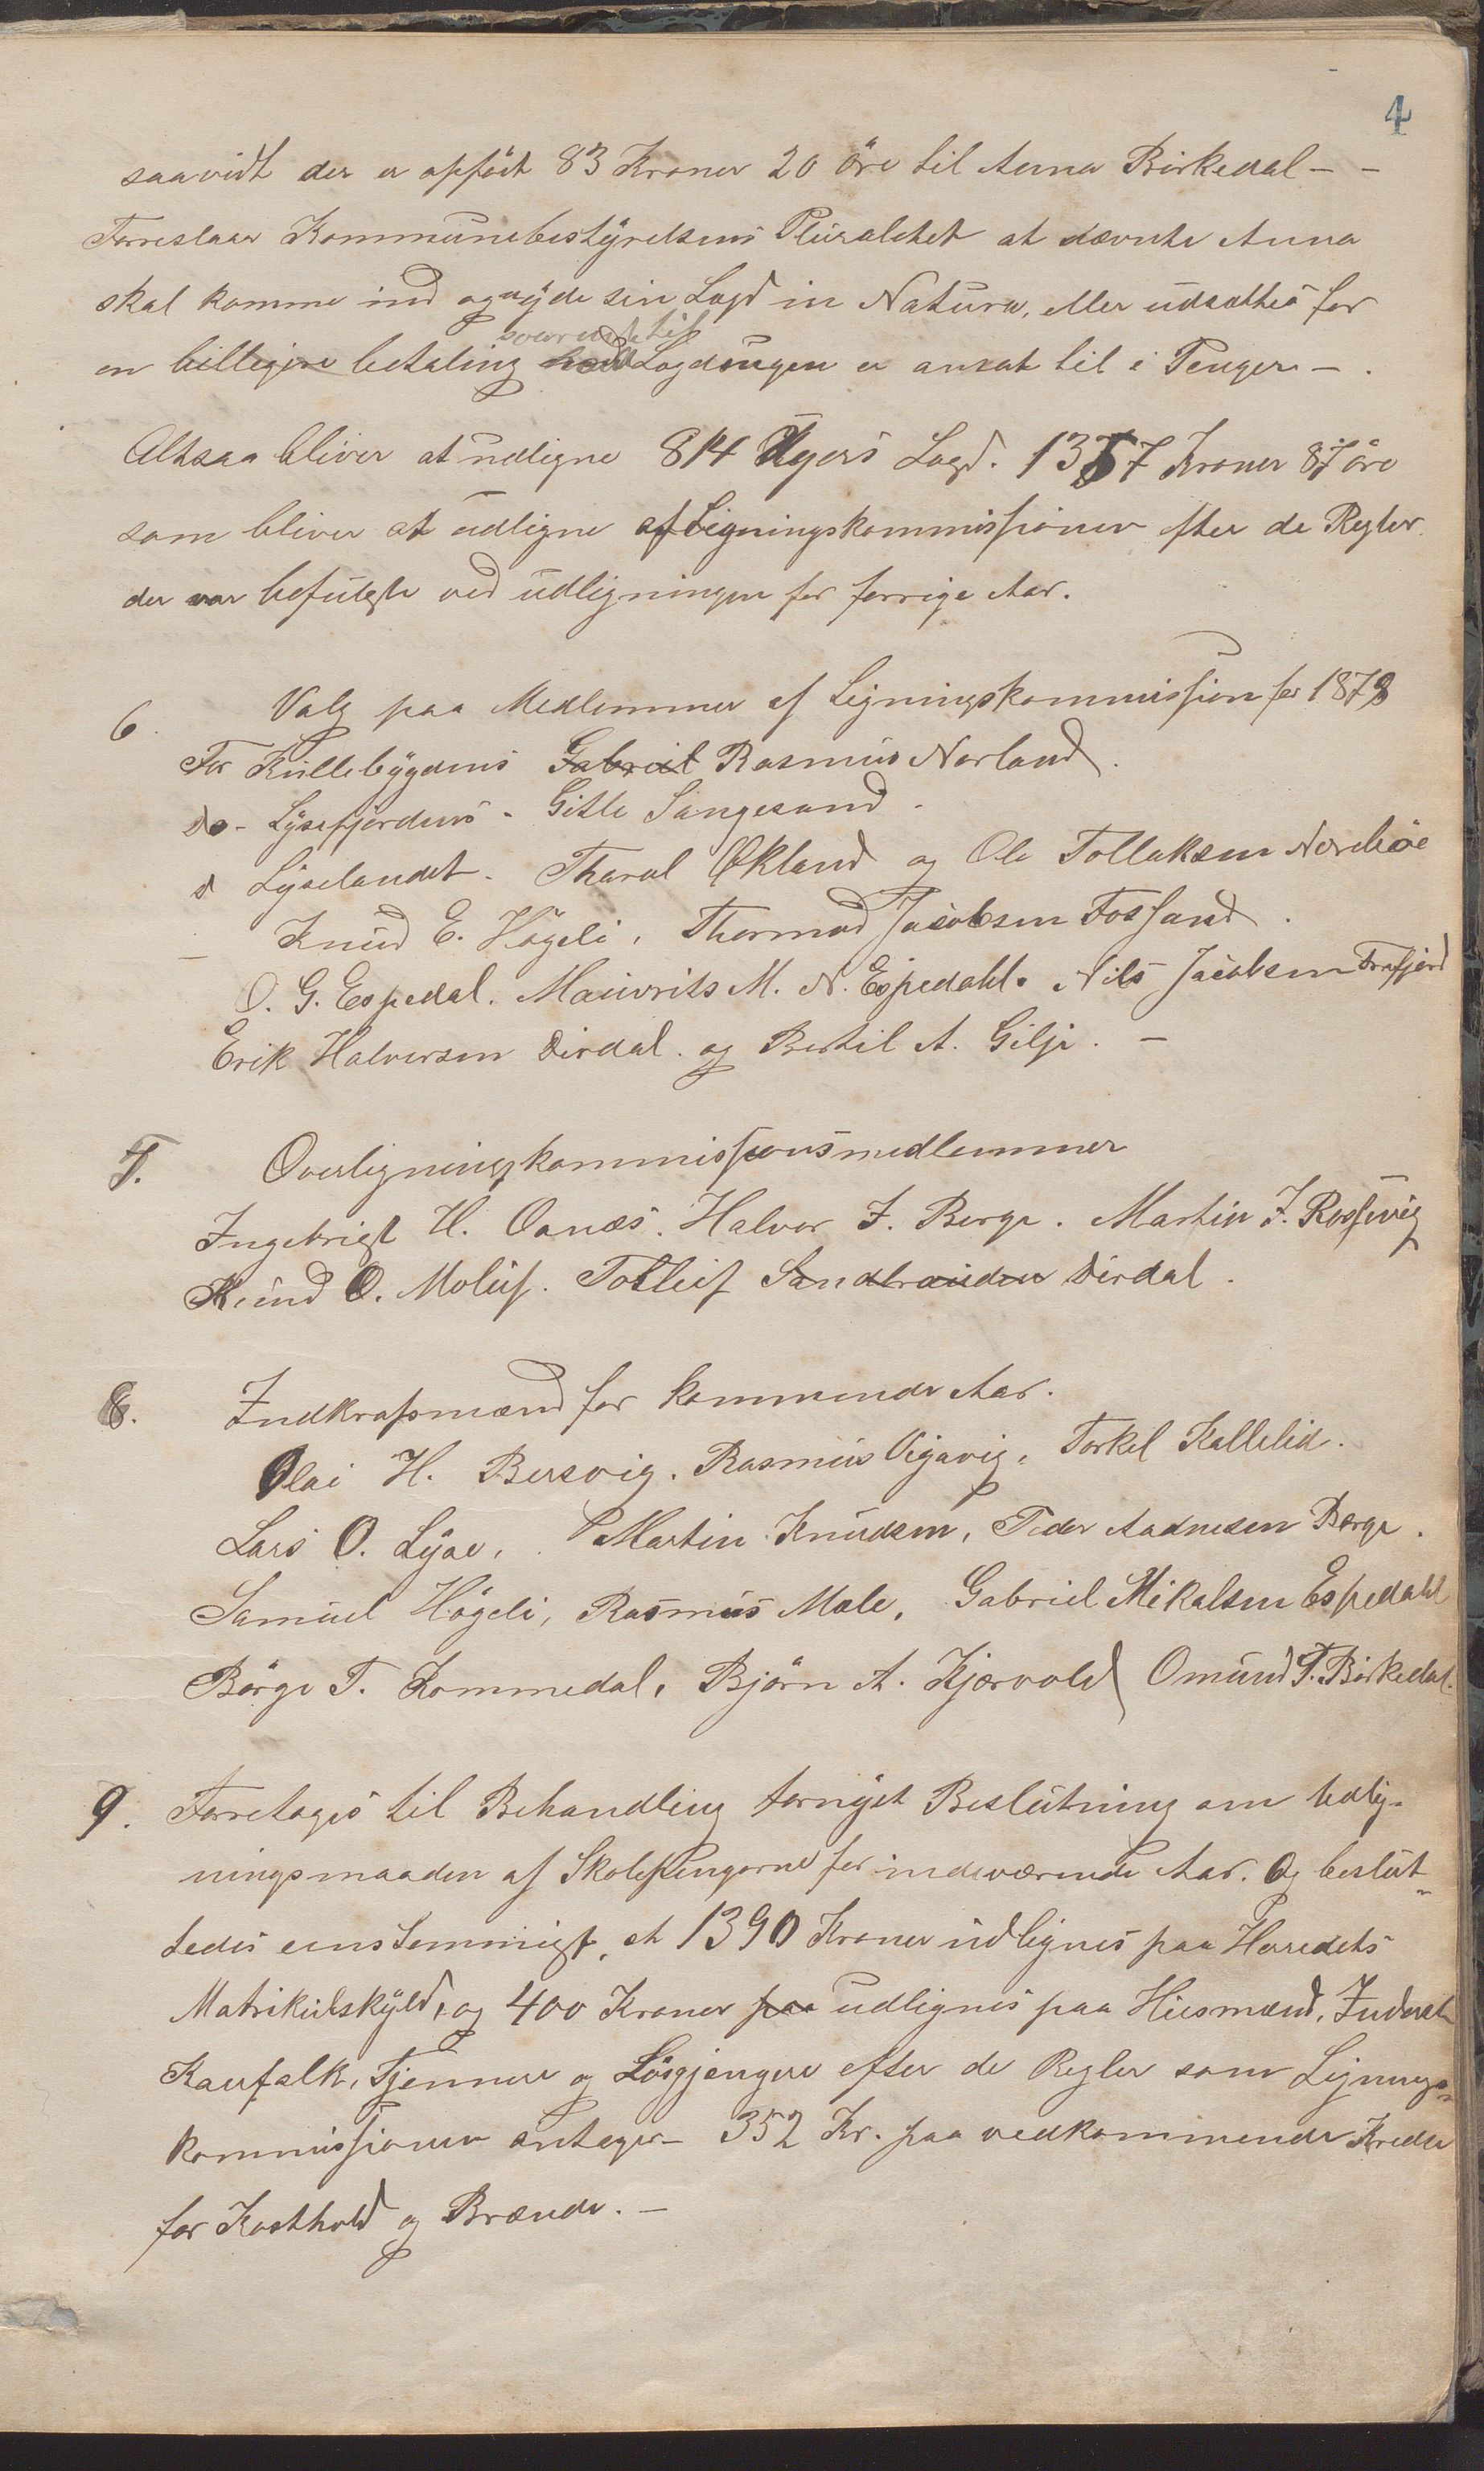 4
saavidt der er opfört 83 Kroner 20 öre til Anna Birkedal - -
Forreslaar Kommunebestyrelsens Pluralitet at nævnte Anna
skal komme ind og nyde sin Lægd in Natura, eller udsættes for
svarende til
en billigere betaling hvad Lægdsugen er ansat til i Penger -.
Altsaa bliver at udligne 814 Ugers Lægd. 1357 Kroner 87 öre
som bliver at udligne af Ligningskommissionen efter de Regler
der var befulgte ved udligningen for forrige Aar.
6. Valg paa Medlemmer af Ligningskommission for 1878
For Kullebygdens Gabriel Rasmus Norland.
do - Lysefjordens - Gitle Sangesand.
d Lyselandet. Tharal Økland og Ole Tollaksen Nordbøe
- Knud E. Högeli, Thormod Jacobsen Fossand.
O. G. Espedal. Mauritz M. N. Espedahl. Nils Jacobsen Frafjord
Erik Halvorsen Dirdal. og Bertil A. Gilje. -
7. Overligningskommissionsmedlemmer
Ingebrigt H. Oanæs. Halvor J. Berge. Martin J. Rossevig
Knud O. Moluf. Tolleif Sandbrauden Dirdal.
8. Indkrafsmænd for kommende Aar.
Olai H. Bersvig. Rasmus Vigavig, Torkel Kallelid.
Lars O. Lyse, Martin Knudsen, Peder Aadnesen Berge.
Samuel Högeli, Rasmus Mæle, Gabriel Mikalsen Espedahl
Börge T. Kommedal, Björn A. Kjærvold Omund T. Birkedal.
9. Forretages til Behandling fornyet Beslutning om Udlig-
ningsmaaden af Skolepengerne for indeværende Aar. Og beslut-
tedes eenstemmigt, at 1390 Kroner udlignes paa Herredets
Matrikulskyld, og 400 Kroner paa udlignes paa Husmænd, Inderst-
Kaarfolk, Tjennere og Lösgjengere efter de Regler som Lignings-
kommissionen antager - 352 Kr. paa vedkommende Kredse
for Kosthold og Brænde. -